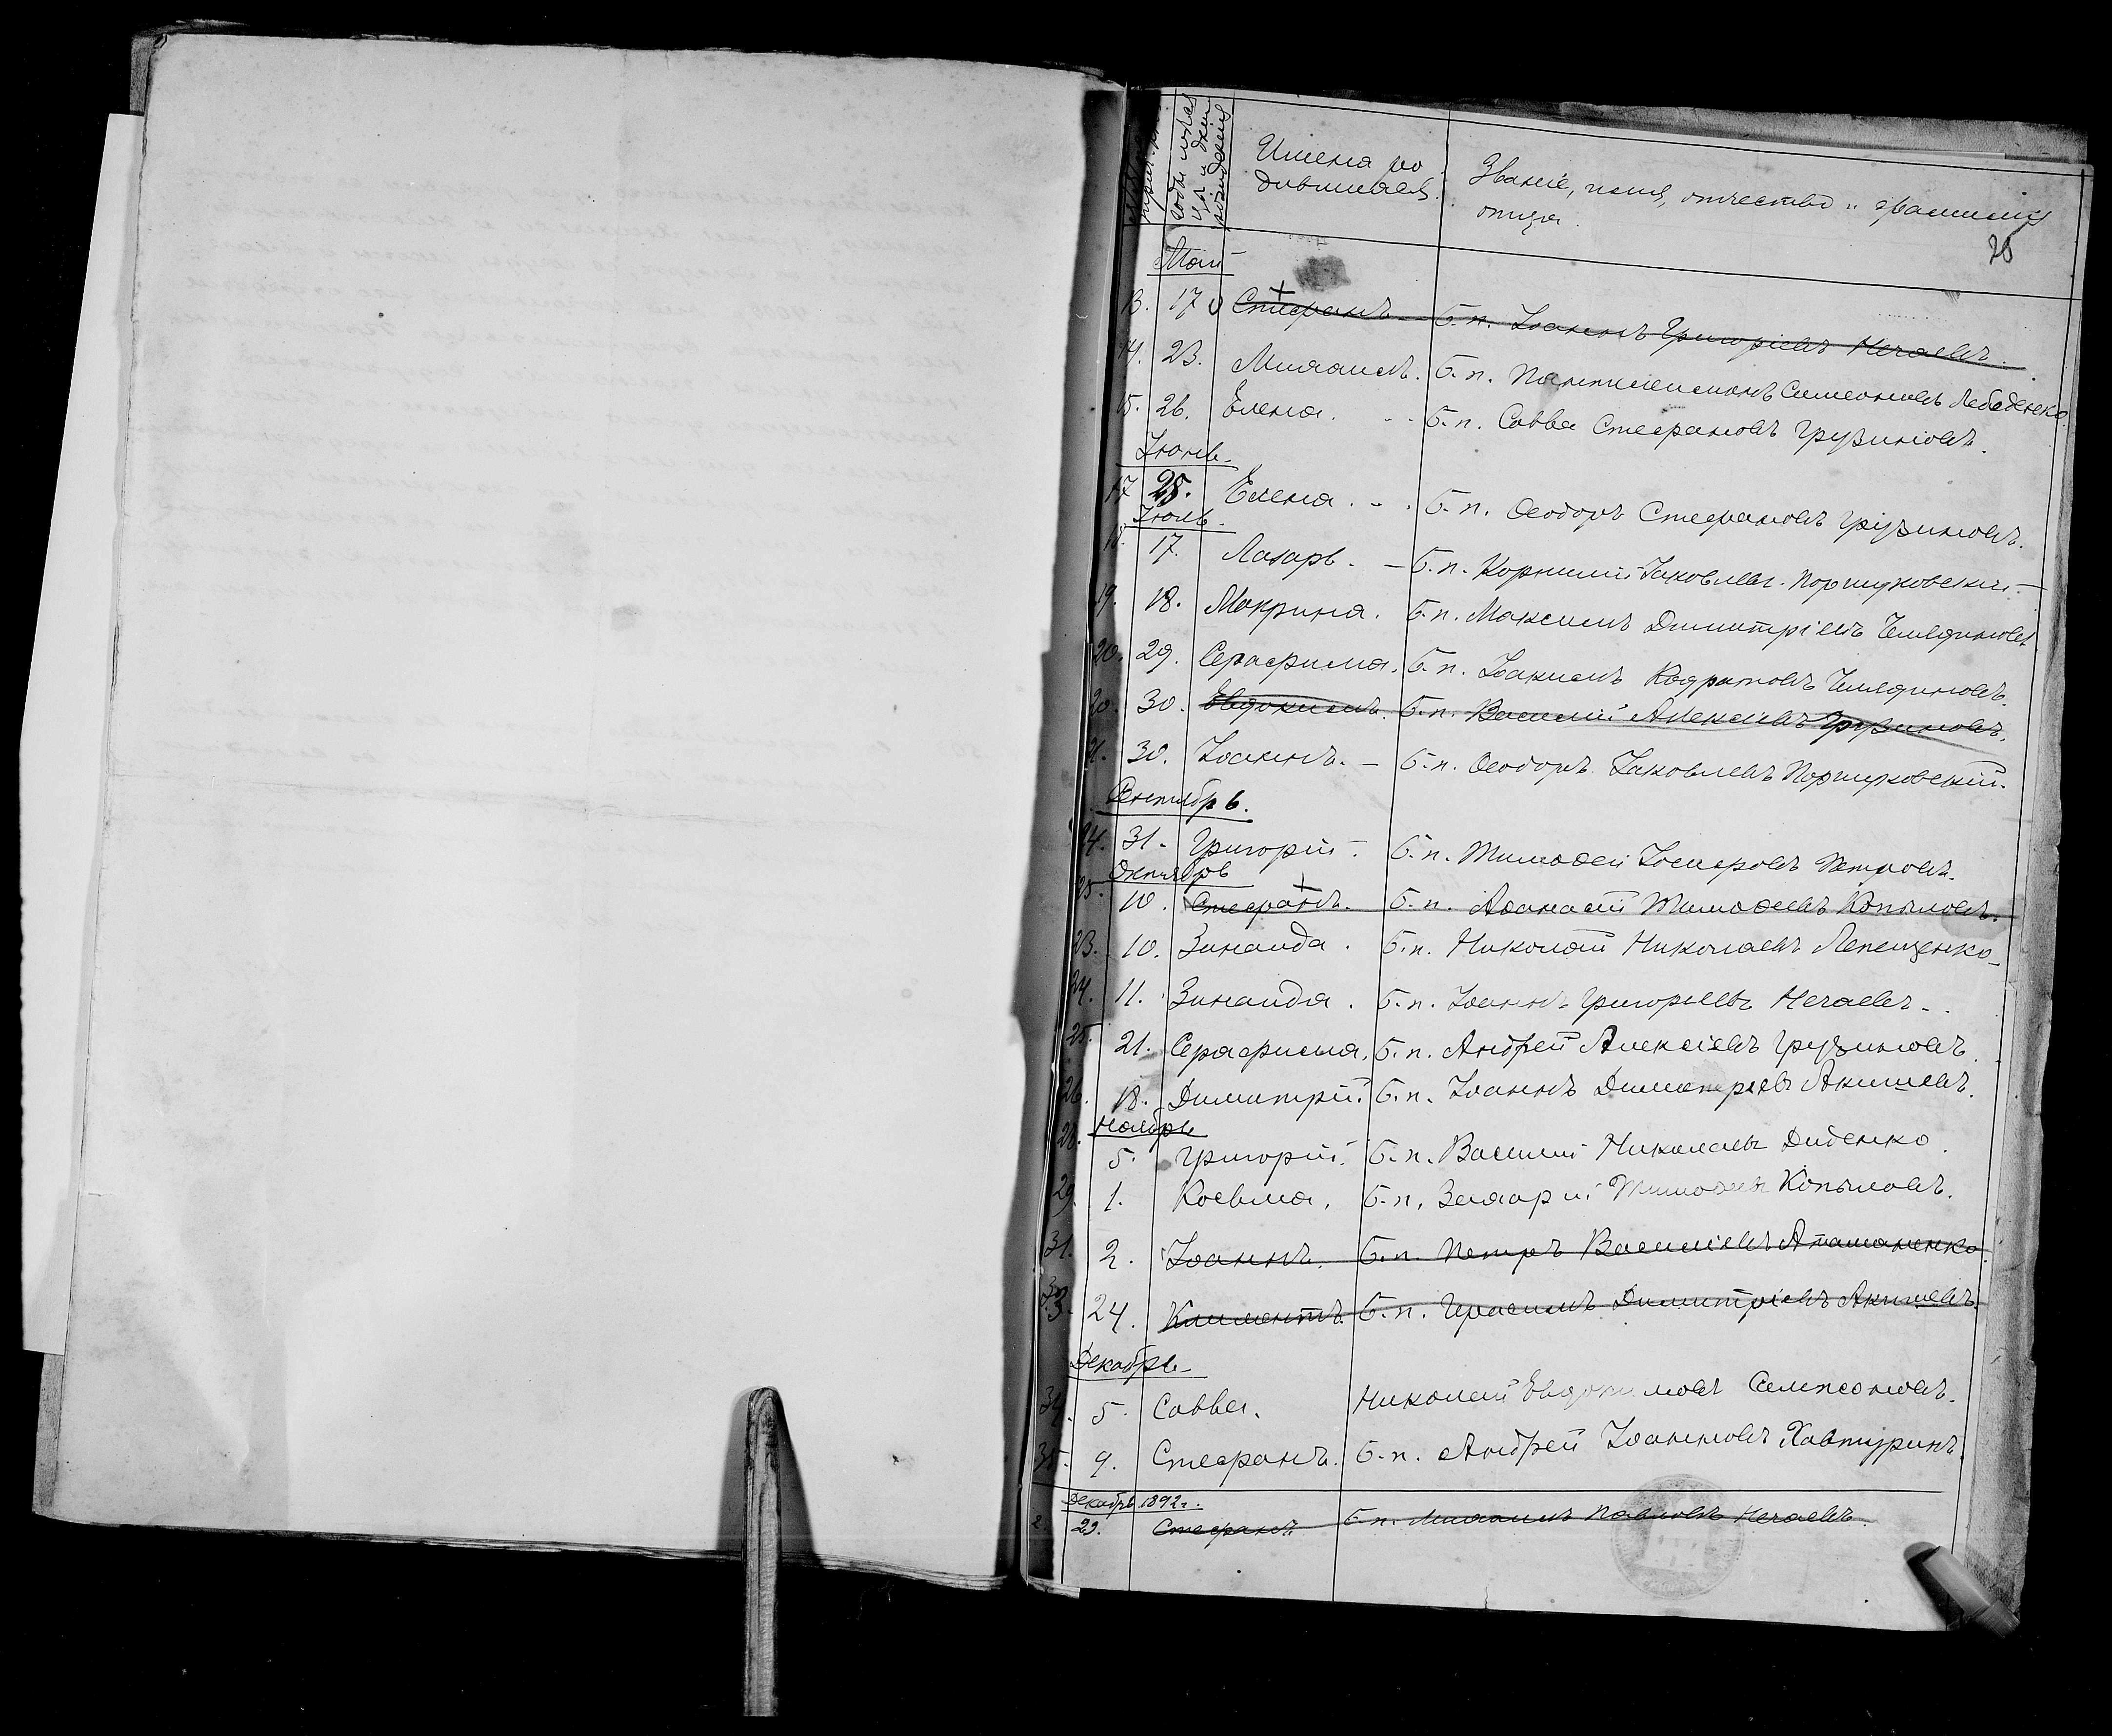 годъ мѣся
ца и дни
рожденія
Имена ро
дившихся.
Званіе, имя, отчество и фамилія
отца.
20
Май
13. 17 Стефанъ б.п. Іоаннъ Григоріевъ Нечаевъ.
14. 23. Михаилъ. б.п. Пантелеимонъ Симеоновъ Лебеденко.
15. 26. Елена. б.п. Савва Стефановъ Грузиновъ.
Іюнь.
17 25. Елена. б.п. Ѳеодоръ Стефановъ Грузиновъ.
Іюль.
18. 17. Лазарь. б.п. Корнилій Іаковлевъ
19. 18. Макрина. б.п. Максимъ Димитріевъ
20. 29. Серафима. б.п. Іоакимъ Кодратовъ
20. 30. Евдокимъ. б.п. Василій Алексіевъ Грузиновъ.
21. 30. Іоаннъ. б.п. Ѳеодоръ Іаковлевъ
Сентябрь.
24. 31. Григорій. б.п. Тимоѳей Іосифовъ Петровъ.
Октябрь
25. 10. Стефанъ. б.п. Аѳанасій Тимоѳеевъ Копыловъ.
23. 10. Зинаида. б.п. Николай Николаевъ Лепещенко
24. 11. Зинаида. б.п. Іоаннъ Григорьевъ Нечаевъ.
25. 21. Серафима. б.п. Андрей Алексіевъ Грузиновъ.
26. 18. Димитрій. б.п. Іоаннъ Димитріевъ Акишевъ.
Ноябрь
28. 5. Григорій. б.п. Василій Николаевъ Диденко.
29. 1. Косьма. б.п. Захарій Тимоѳеевъ Копыловъ.
31. 2. Іоаннъ. б.п. Петръ Василіевъ Атаманенко.
33. 24. Климентъ. б.п. Герасимъ Димитріевъ Акишевъ.
Декабрь
34. 5. Савва. Николай Евдокимовъ Сампсоновъ.
35. 9. Стефанъ. б.п. Андрей Іоанновъ Хавтуринъ.
Декабрь 1892 г.
2. 29. Стефанъ б.п. Михаилъ Павловъ Нечаевъ.